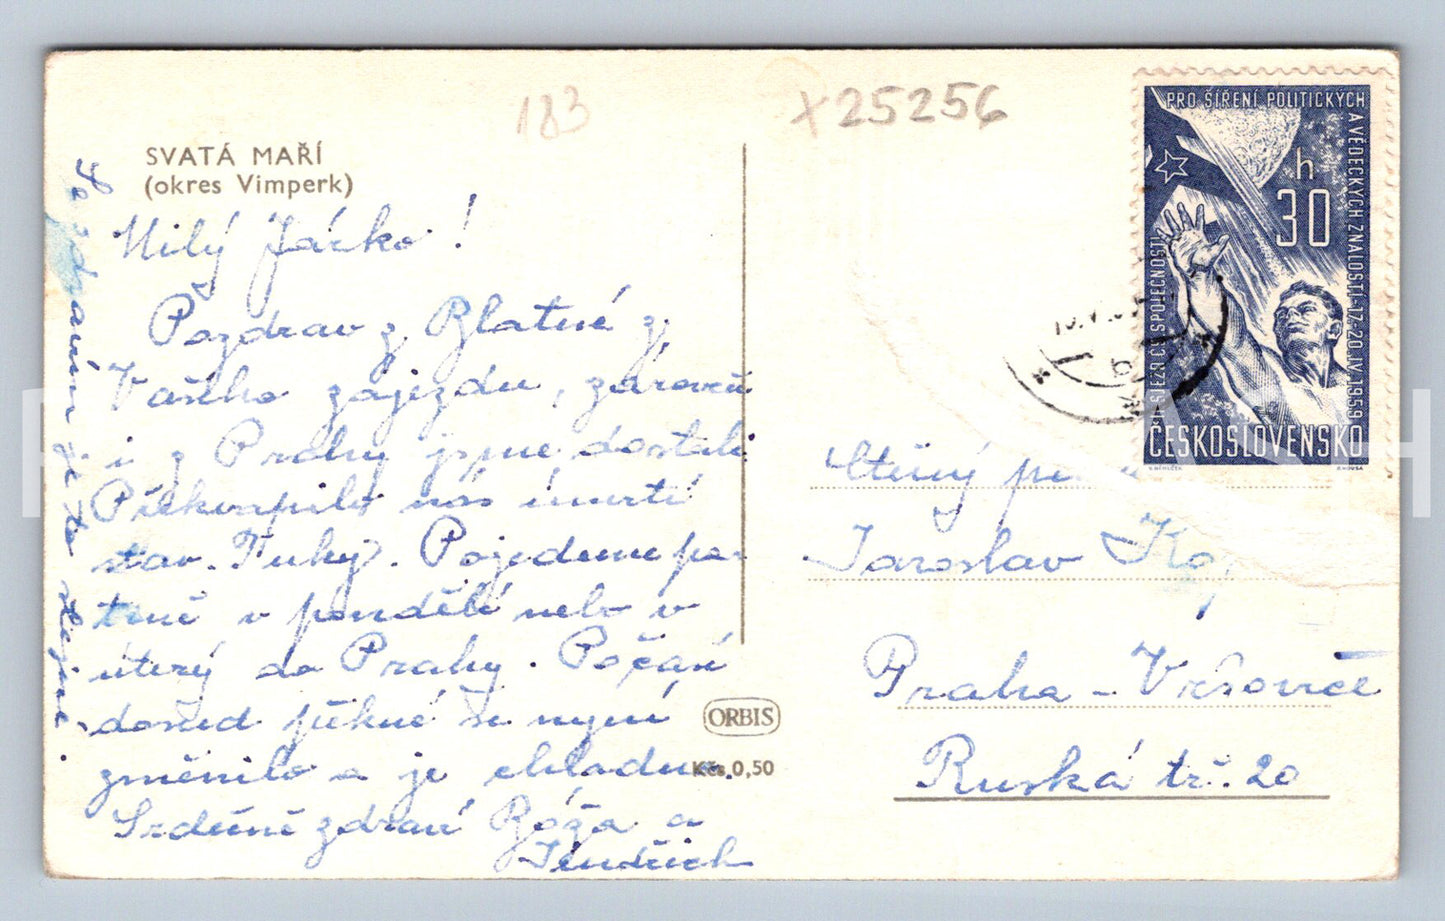 183
x25256
SVATÁ MAŘÍ
(okres Vimperk)
Milý Járko!
Pozdrav z Blatné z
Vašeho zájezdu, zároveň
i z Prahy jsme dostali.
Překvapilo nás úmrtí
stav. Tuhý. Pojedeme pa-
trně v pondělí nebo v
úterý do Prahy. Počasí
dosud pěkné se nyní
změnilo a je chladno.
Srdečně zdraví Róža a
Jindřich
Se zdravím je to
ORBIS
Kčs 0,50
PRO ŠÍŘENÍ POLITICKÝCH
A VĚDECKÝCH ZNALOSTÍ-17-20.IV.1959
SJEZD ČS. SPOLEČNOSTI
h
30
ČESKOSLOVENSKO
Ctěný
Jaroslav
Praha - Vršovice
Ruská tř. 20